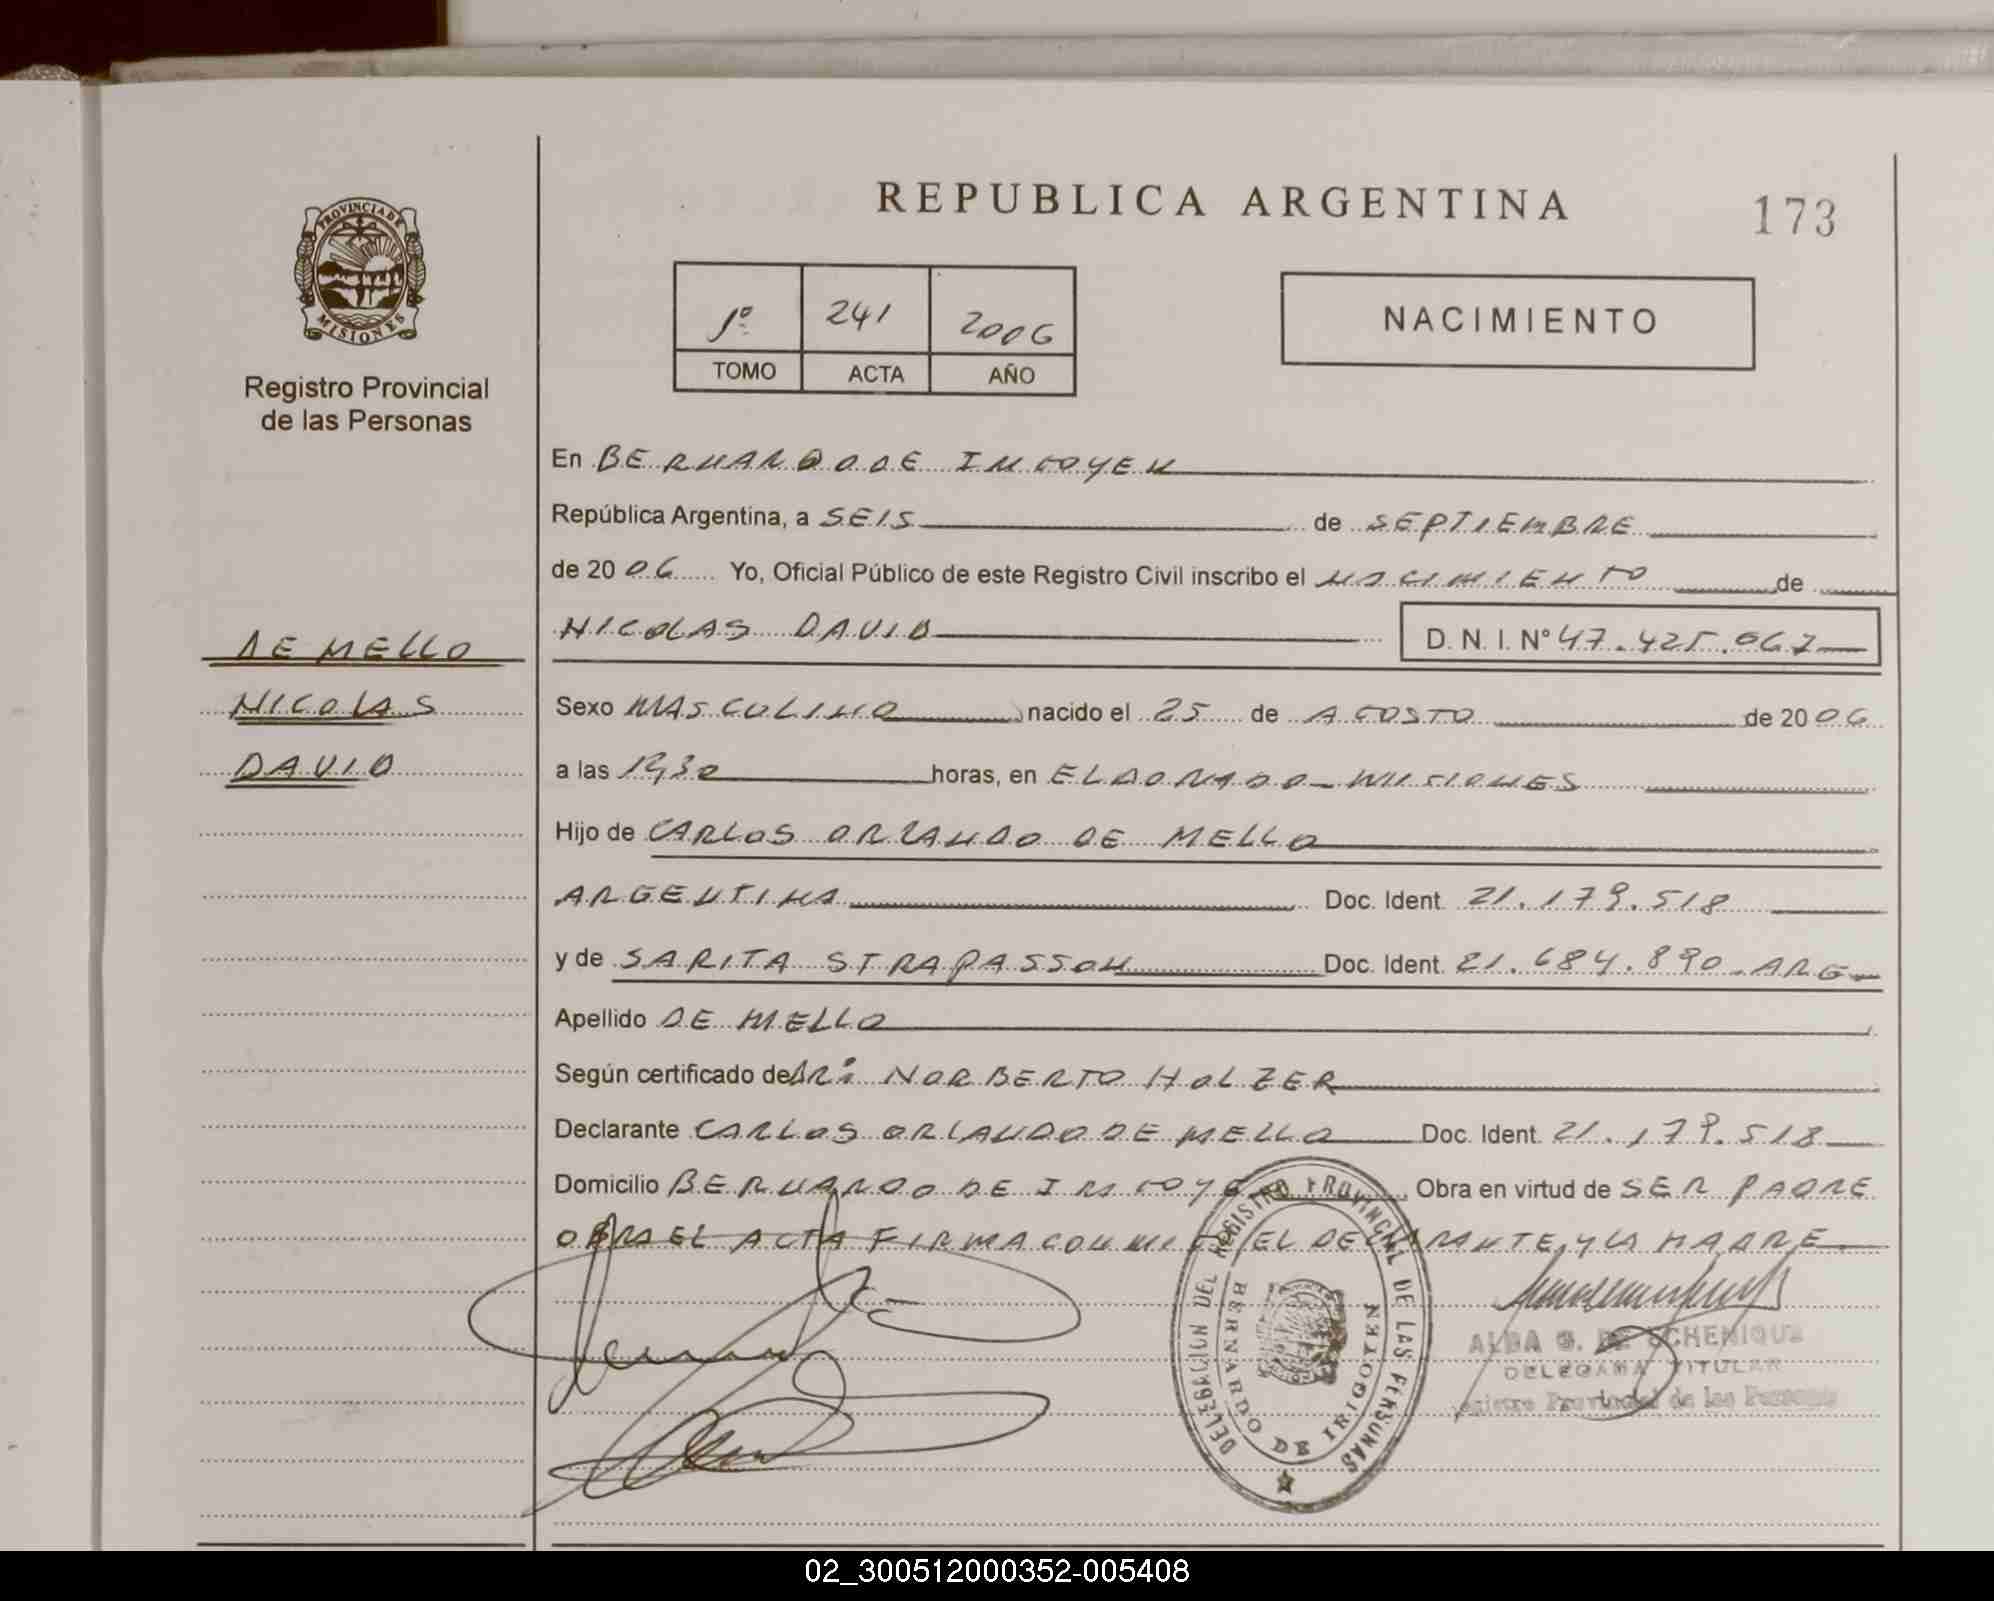 PROVINCIA DE
MISIONES
Registro Provincial
de las Personas
DE MELLO
NICOLAS
DAVID
REPUBLICA ARGENTINA
173
1º 241 2006
TOMO ACTA AÑO
NACIMIENTO
En BERNARDO DE IRIGOYEN
República Argentina, a SEIS de SEPTIEMBRE
de 2006 Yo, Oficial Público de este Registro Civil inscribo el NACIMIENTO de
NICOLAS DAVID D. N. I. Nº 47.425.067
Sexo MASCULINO nacido el 25 de AGOSTO de 2006
a las 19,30 horas, en ELDORADO - MISIONES
Hijo de CARLOS ORLANDO DE MELLO
ARGENTINA Doc. Ident. 21.179.518
y de SARITA STRAPASSON Doc. Ident. 21.684.890 - ARG
Apellido DE MELLO
Según certificado de DR: NORBERTO HOLZER
Declarante CARLOS ORLANDO DE MELLO Doc. Ident. 21.179.518
Domicilio BERNARDO DE IRIGOYEN Obra en virtud de SER PADRE
EL ACTA FIRMA CONMIGO EL DECLARANTE, Y LA MADRE
DELEGACION DEL REGISTRO PROVINCIAL DE LAS PERSONAS
BERNARDO DE IRIGOYEN
ALBA G. DE ECHENIQUE
DELEGADA TITULAR
Registro Provincial de las Personas
02_300512000352-005408